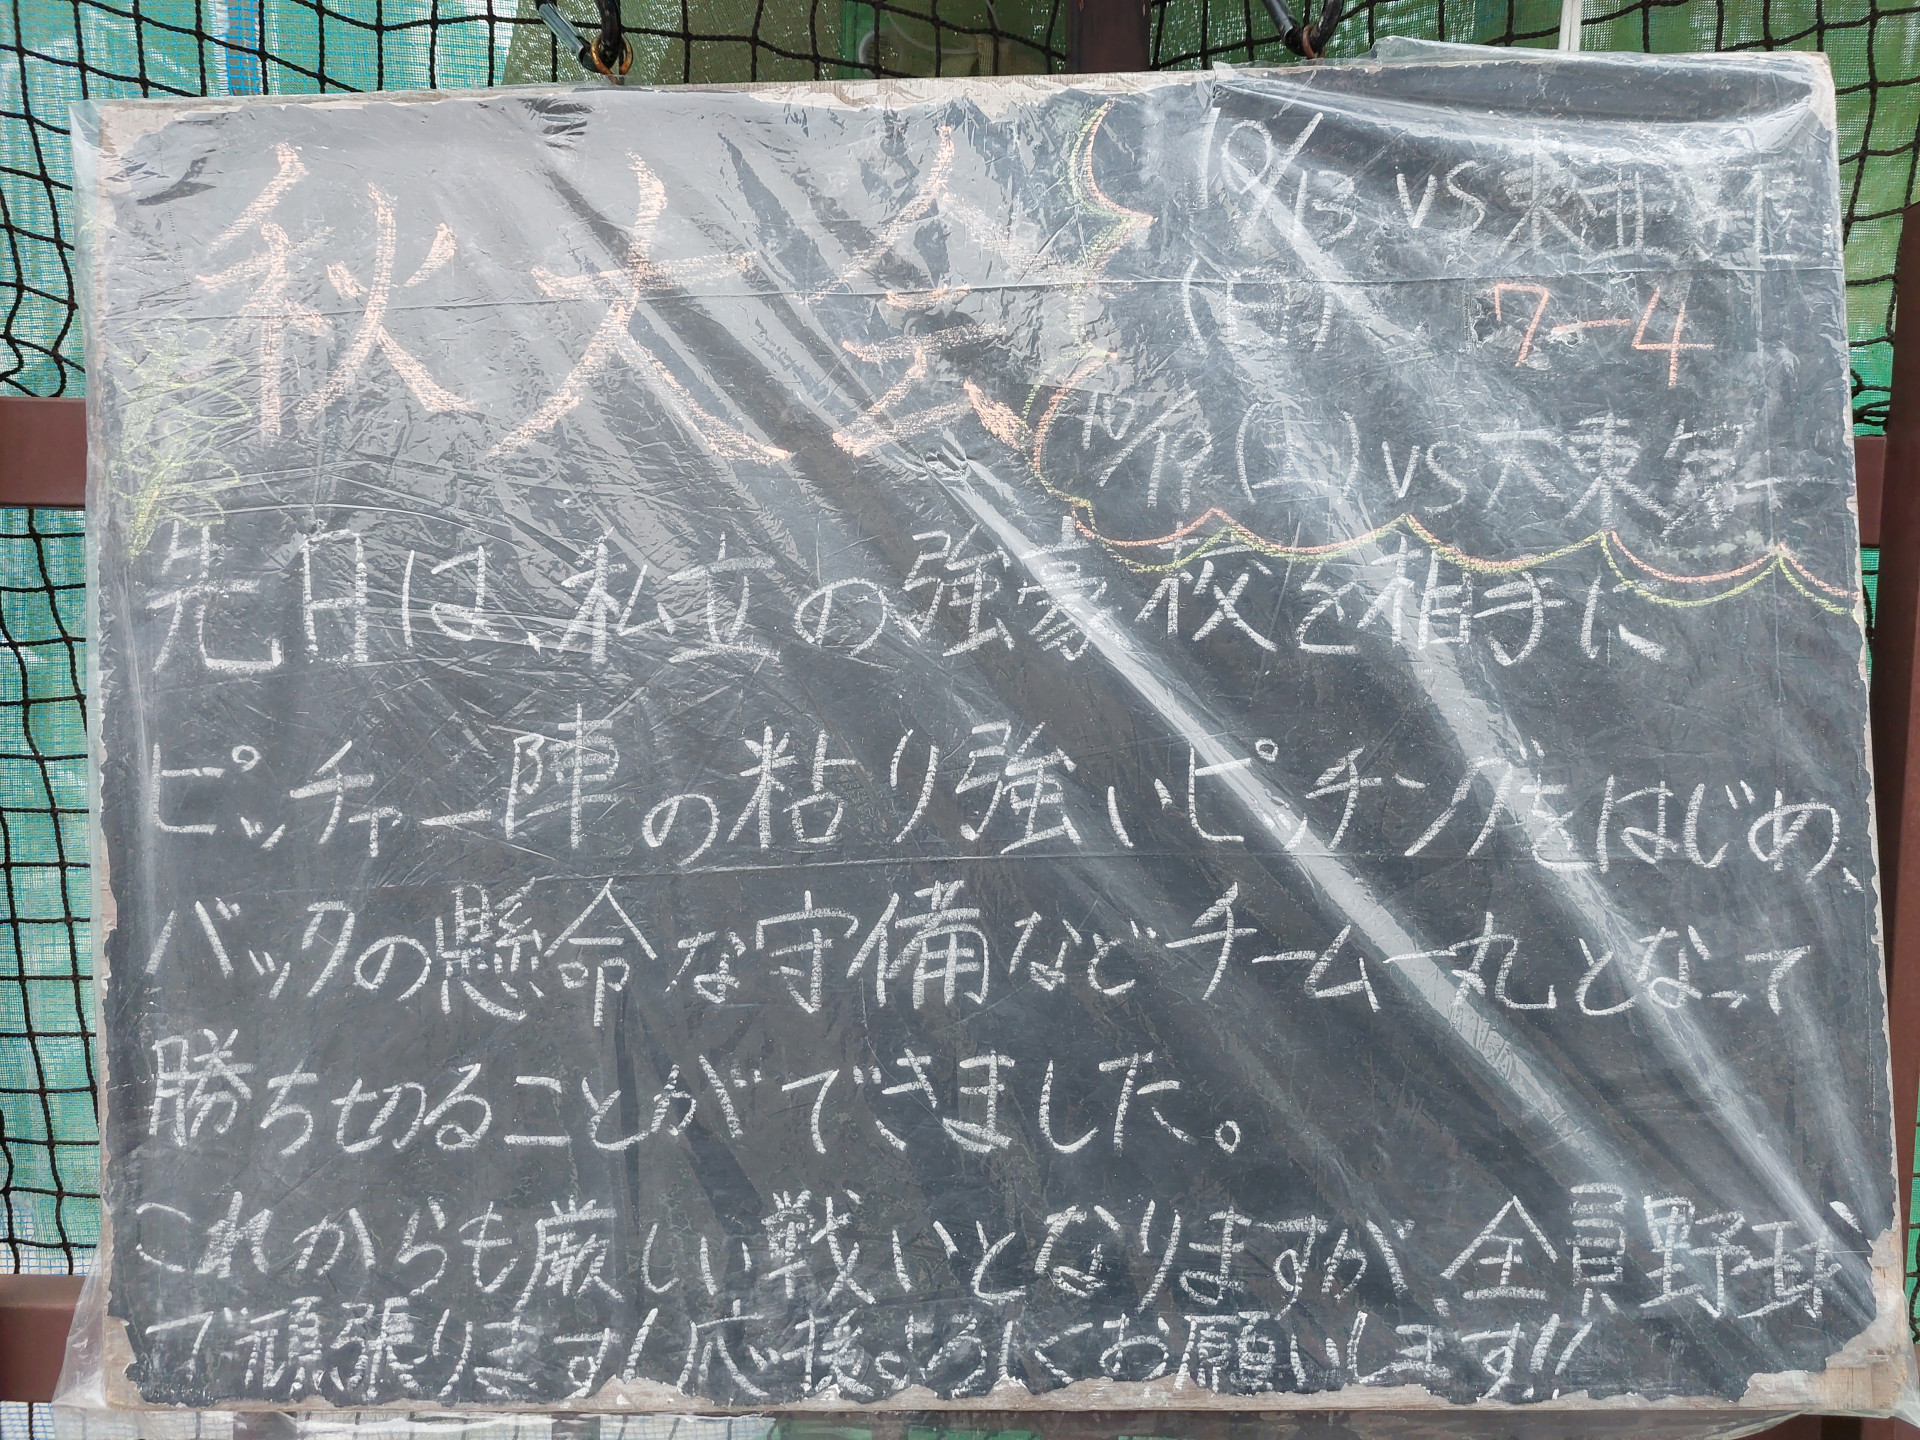 秋大会
10/13 vs 東亜学
(日) 7-4
10/19 (土) vs 大東第一
先日は、私立の強豪校を相手に
ピッチャー陣の粘り強いピッチングをはじめ、
バックの懸命な守備などチーム一丸となって
勝ち切ることができました。
これからも厳しい戦いとなりますが、全員野球
で頑張ります!応援よろしくお願いします!!